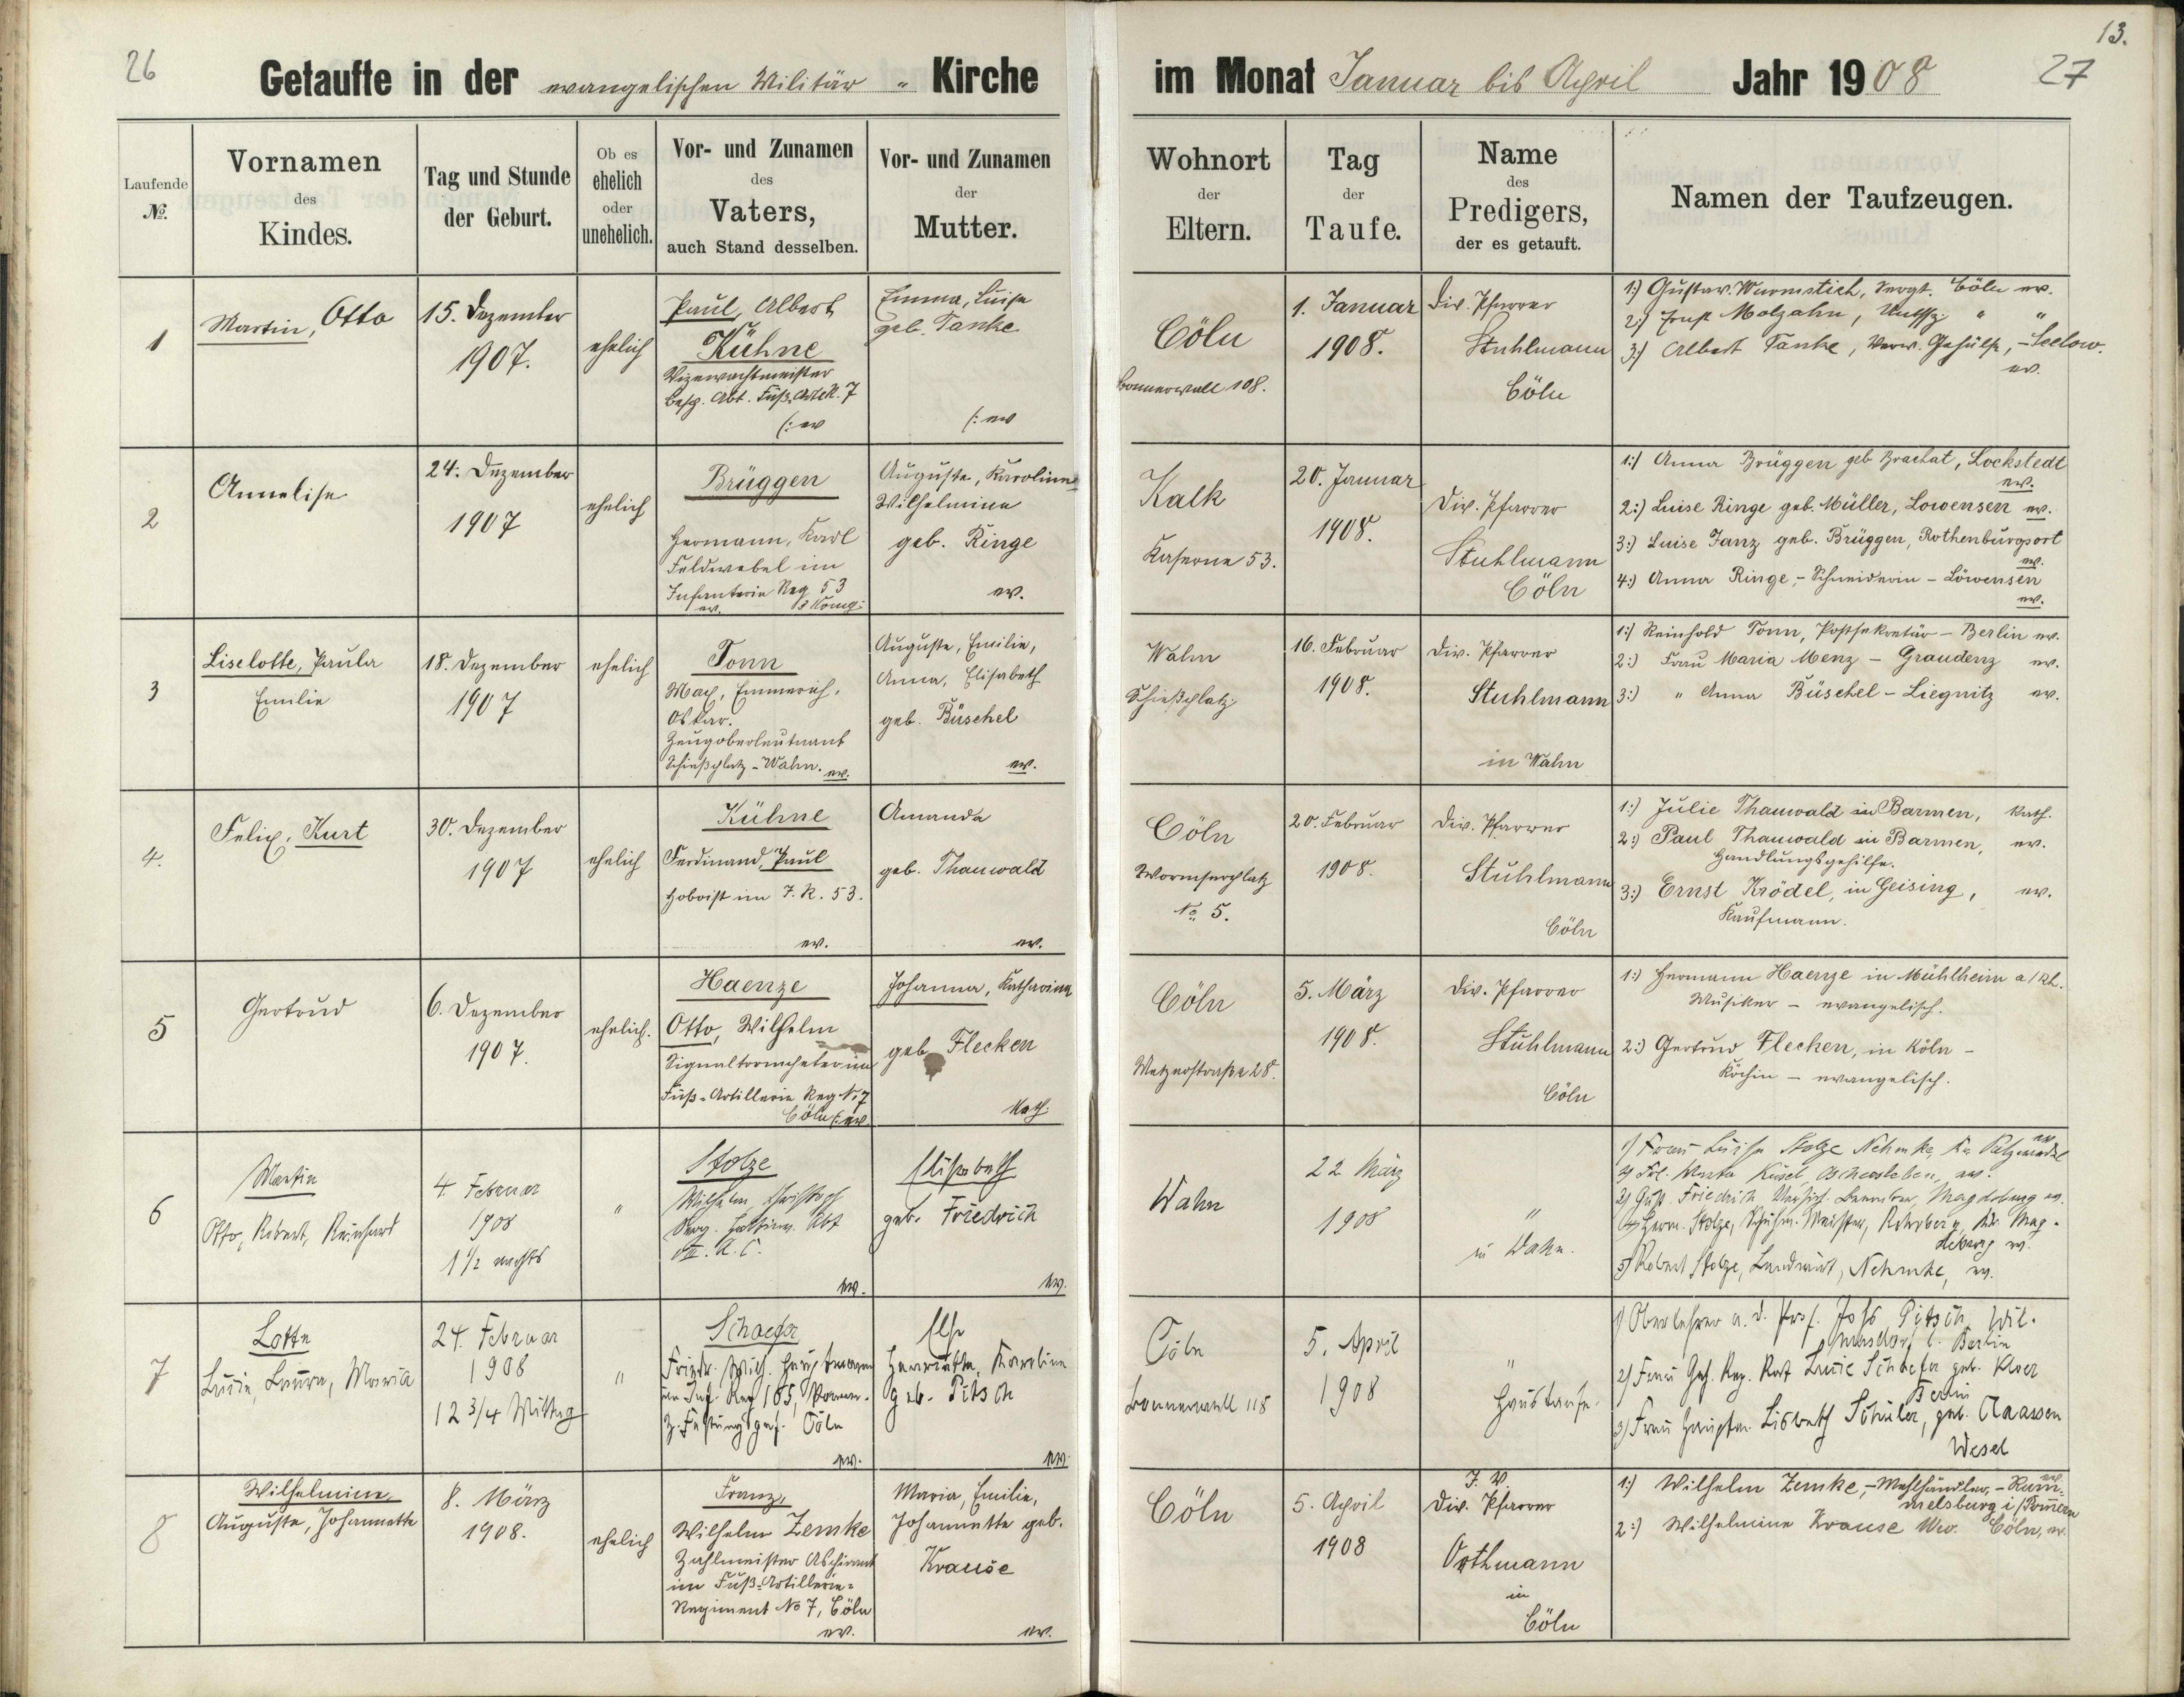 26
Getaufte in der evangelischen Militär - Kirche
Laufende
No.
Vornamen
des
Kindes.
Tag und Stunde
der Geburt.
Ob es
ehelich
oder
unehelich.
Vor- und Zunamen
des
Vaters,
auch Stand desselben.
Vor- und Zunamen
der
Mutter.
13.
im Monat Januar bis April Jahr 1908
27
Wohnort
der
Eltern.
Tag
der
Taufe.
Name
des
Predigers,
der es getauft.
Namen der Taufzeugen.
1
Martin, Otto
15. Dezember
1907.
ehelich
Paul, Albert
Kühne
Vizewachtmeister
Besp. Abt. Fuß. Art. R. 7
(: ev
Emma, Luise
geb. Tanke
(: ev
Cöln
Bonnerwall 108.
1. Januar
1908.
Div. Pfarrer
Stuhlmann
Cöln
1:) Gustav Wurmstich, Sergt. Cöln ev.
2:) Ernst Molzahn, Utffz. " "
3:) Albert Tanke, Verw. Gehülfe, - Seelow.
ev.
2
Annelise
24. Dezember
1907
ehelich
Brüggen
Hermann, Karl
Feldwebel im
Infanterie Reg 53
ev.
Auguste, Karoline
Wilhelmine
geb. Ringe
ev.
Kalk
Kaserne 53.
20. Januar
1908.
Div. Pfarrer
Stuhlmann
Cöln
1:) Anna Brüggen geb Brachat, Lockstedt
ev.
2:) Luise Ringe geb. Müller, Lowensen ev.
3:) Luise Janz geb. Brüggen, Rothenburgsort
ev.
4:) Anna Ringe, - Schneiderin - Löwensen
ev.
3
Liselotte, Paula
Emilie
18. Dezember
1907
ehelich
Tonn
Max, Emmerich,
Oskar.
Zeugoberleutnant
Schießplatz - Wahn. ev.
Auguste, Emilie,
Anna, Elisabeth
geb. Büschel
ev.
Wahn
Schießplatz
16. Februar
1908.
Div. Pfarrer
Stuhlmann
in Wahn
1:) Reinhold Tonn, Postsekretär - Berlin ev.
2:) Frau Maria Menz - Graudenz ev.
3:) " Anna Büschel - Liegnitz ev.
4.
Felix, Kurt
30. Dezember
1907
ehelich
Kühne
Ferdinand, Paul
Hoboist im J. R. 53.
ev.
Amanda
geb. Thauwald
ev.
Cöln
Wormserplatz
No 5.
20. Februar
1908.
Div. Pfarrer
Stuhlmann
Cöln
1:) Julie Thauwald in Barmen, kath.
2:) Paul Thauwald in Barmen, ev.
Handlungsgehilfe.
3:) Ernst Krödel, in Geising, ev.
Kaufmann.
5
Gertrud
6. Dezember
1907.
ehelich.
Haenze
Otto, Wilhelm
Signaltrompeter im
Fuß-Artillerie Reg No 7
Cöln (: ev
Johanna, Katharina
geb Flecken
kath:
Cöln
Metzerstraße 28.
5. März
1908.
Div. Pfarrer
Stuhlmann
Cöln
1:) Hermann Haenze in Mühlheim a/Rh.
Musiker - evangelisch.
2:) Gertrud Flecken, in Köln -
Köchin - evangelisch.
6
Martin
Otto, Robert, Reinhard
4 Februar
1908
1 1/2 nachts
"
Stolze
Wilhelm, Christoph
VII. A. C.
ev.
Elisabeth
geb. Friedrich
ev.
Wahn
22 März
1908
"
in Wahn.
1) Frau Luise Stolze Nehmke, Kr. Salzwedel
ev
2) Frl. Marta Küsel, Aschersleben, ev.
3) Gust. Friedrich Magdeburg ev.
4) Herm. Stolze, Schuhm. Meister, Rohrberg, Kr. Mag-
deburg ev.
5) Robert Stolze, Landwirt, Nehmke, ev.
7
Lotte
Luise, Laura, Maria
24. Februar
1908
12 3/4 Mittag
"
Schaefer
Friedr. Wilh. Hauptmann
im Inf. Reg 165,
z. Festungsgef. Cöln
ev.
Else
Henriette, Karoline
geb. Pitsch
ev.
Cöln
Bonnerwall 118
5. April
1908
"
Haustaufe.
1) Oberlehrer a. D. Prof. Johs. Pitsch, Wil-
mersdorf b. Berlin
2) Frau Geh. Reg. Rat Luise Schaefer geb. Kloer
Berlin
3) Frau Hauptm. Lisbeth Schüler, geb. Claassen
Wesel
8
Wilhelmine
Auguste, Johannette
8. März
1908.
ehelich
Franz,
Wilhelm Zemke
Zahlmeister Aspirant
im Fuß-Artillerie-
Regiment No 7, Cöln
ev.
Maria, Emilie,
Johannette geb.
Krause
ev.
Cöln
5. April
1908
J. V.
Div. Pfarrer
Orthmann
in
Cöln
1:) Wilhelm Zemke, - Mehlhändler, - Rum-
ev.
melsburg i/Pommern
2:) Wilhelmine Krause Ww. Cöln, ev.